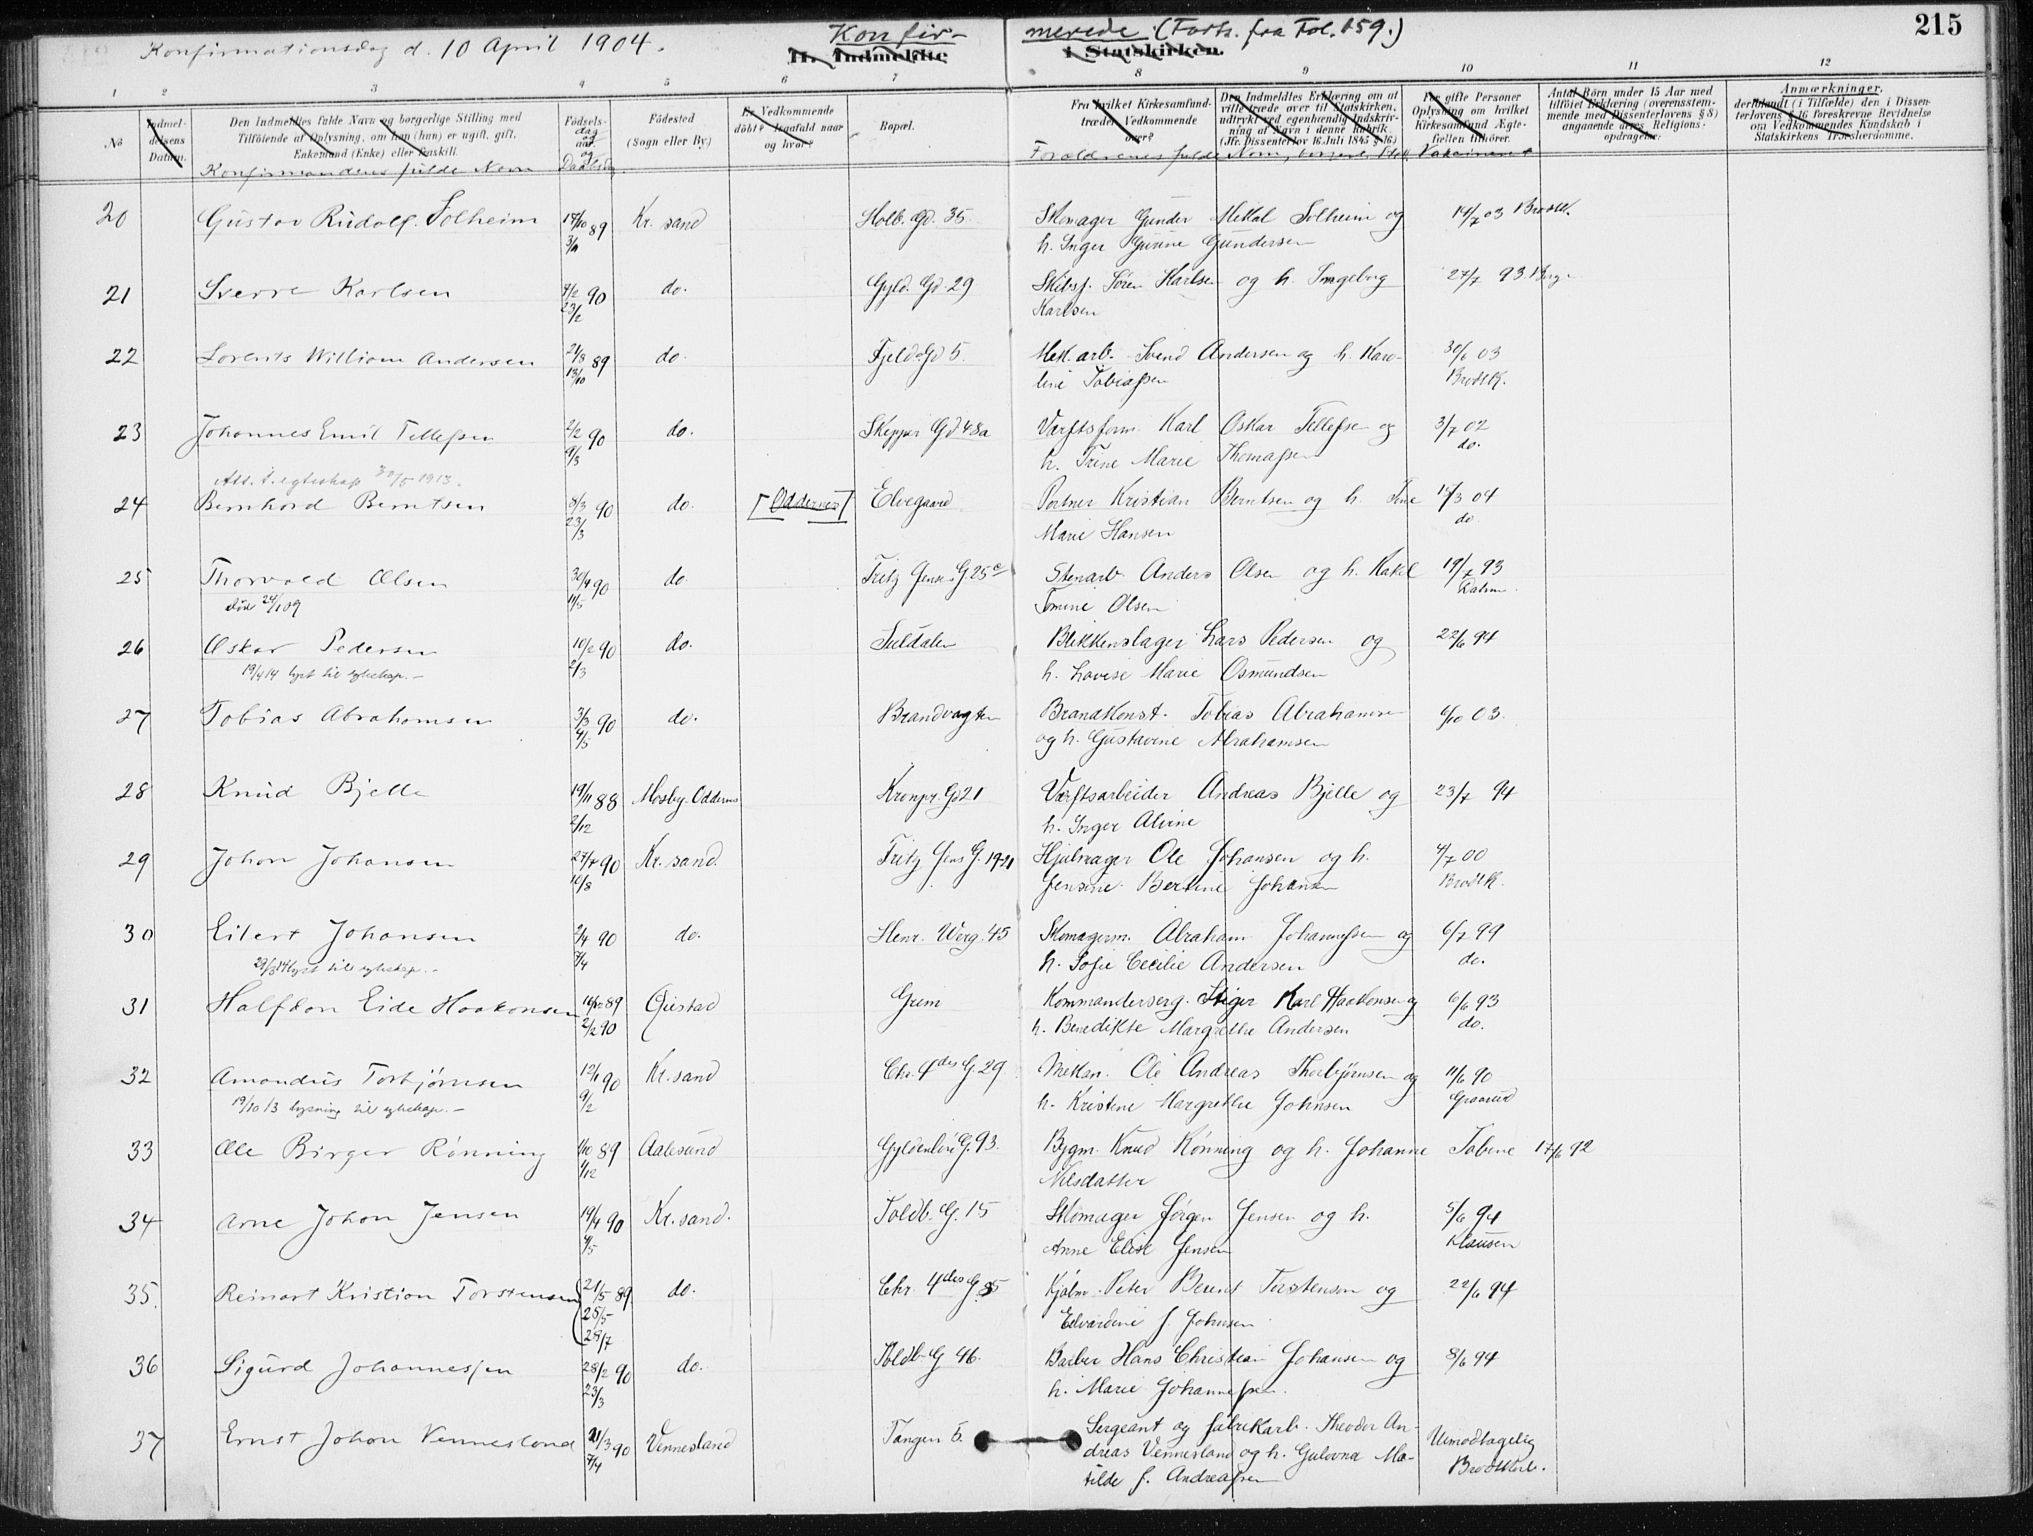 215
Konfirmationsdag d. 10 April 1904.
Konfir- merede. (Forts. fra Fol. 159.)
II. Indmeldte i Statskirken.
1 2 3 4 5 6 7 8 9 10 11 12
No
Indmeldelsens Datum.
Den Indmeldtes fulde Navn og borgerlige Stilling med Tilföiende af Oplysning, om han (hun) er ugift, gift, Enkemand (Enke) eller fraskilt.
Konfirmandens fulde Navn
Födselsdag og aar. og Daabsdag
Födested (Sogn eller By.)
Er Vedkommende döbt? Isaafald naar og hvor?
Bopæl.
Fra hvilket Kirkesamfund træder Vedkommende over?
Den Indmeldtes Erklæring om at ville træde over til Statskirken, udtrykt ved egenhændig Indskrivning af Navn i denne Rubrik. (Jfr. Dissenterlov 16 Juli 1845 § 16)
For gifte Personer Oplysning om hvilket Kirkesamfund Ægtefællen tilhörer.
Antal Börn under 15 Aar med tilföiet Erklæring (overensstemmende med Dissenterlovens § 8) angaaende deres Religionsopdragelse.
Anmærkninger.
deriblandt (i Tilfælde) den i Dissenterlovens § 16 foreskrevne Bevidnelse om Vedkommendes Kundskab i Statskirkens Troeslærdomme.
Forældrenes fulde Navn, borgerl. Still. Vaksineret
20 Gustav Rudolf Solheim 17/10 89 Kr. sand Holb. Gd. 35. Skomager Gunder Mikal Solheim og 14/7 03 Brodtk.
h. Inger Gurine Gundersen
21 Sverre Karlsen 7/2 90 do. Gyld. Gd 29 Skibsf. Sören Karlsen og h. Ingeborg 27/7 93
23/2 Karlsen
22 Lorents William Andersen 21/8 89 do. Fjeld. Gd 5. Mek. arb. Svend Andersen og h. Karo- 30/6 03
13/10 line Tobiassen Brodtk.
23 Johannes Emil Tellefsen 2/2 90 do. Skipper Gd 48a Værftsform. Karl Oskar Tellefsen og 3/7 02
9/3 h. Trine Marie Thomassen do.
Att. t. egteskap 30/5 1913.
24 Bernhard Berntsen 8/3 90 do. [Oddernes] Elvegaard Portner Kristian Berntsen og h. Tine 15/3 04
23/3 Marie Hansen do
25 Thorvald Olsen 30/4 90 do. Fritz Jens. G. 25c Stenarb. Anders Olsen og h. Kakel 19/7 93
död 24/1 09 11/5 Tomine Olsen
26 Oskar Pedersen 10/2 90 do. Suldalen Blikkenslager Lars Pedersen og 22/6 94
19/4 14 lyst til egteskap. - 2/3 h. Lovise Marie Osmundsen
27 Tobias Abrahamsen 3/3 90 do. Brandvagten Brandkonst. Tobias Abrahamsen 6/10 03.
4/5 og h. Gustavine Abrahamsen
28 Knud Bjelle 19/11 88 Mosby. Oddernes Kronpr. Gd 21 Værftsarbeider Andreas Bjelle og 23/7 94
2/12 h. Inger Alvine
29 Johan Johansen 27/7 90 Kr. sand. Fritz Jens G. 19-21 Hjulmager Ole Johansen og h. 4/7 00
10/8 Jensine Bertine Johansen Brodtk.
30 Eilert Johansen 2/4 90 do. Henr. Werg. 45 Skomagerm. Abraham Johannessen og 6/7 99
29/3 14 lyst til egteskap. - 7/4 h. Sofie Cecilie Andersen do.
31 Halfdan Eide Haakonsen 16/12 89 Gjestad Grim Kommandersergt. Stiger Karl Haakonsen og 6/6 93
2/2 90 h. Benedikte Margrethe Andersen do.
32 Amandus Torbjörnsen 12/1 90 Kr. sand Chr. 4des G. 29. Mekan. Ole Andreas Thorbjörnsen og 11/6 90
19/10 13 lysning til egteskap. - 9/2 h. Kristine Margrethe Johnsen Graarud
33 Ole Birger Rönning 1/10 89 Aalesund Gyldenlöve G. 93. Bygm. Knud Rönning og h. Johanne Tobine 17/6 92
1/12 Nilsdatter
34 Arne Johan Jensen 14/4 90 Kr. sand. Toldb. G. 15 Skomager Jörgen Jensen og h. 5/6 94
4/5 Anne Elise Jensen Klausen
35. Reinart Kristian Torstensen 21/5 89. do. Chr. 4des G. 85 Kjölm. Peter Berent Torstensen og 22/6 94
25/5 Edvardine f. Johnsen
28/7
36 Sigurd Johannessen 28/2 90 do. Toldb. G 46. Barber Hans Christian Johansen og 8/6 94
23/3 h. Marie Johannessen.
37 Ernst Johan Vennesland 21/3 90 Vennesland Tangen 5. Sergeant og fabrikarb. Theodor An-
7/4 dreas Vennesland og h. Gulovna Ma- Uimodtagelig
tilde f. Andreassen Brodtkorb.